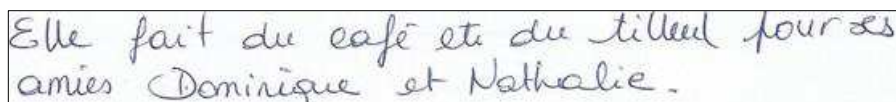 Elle fait du café et du tilleul pour ses
amies Dominique et Nathalie.